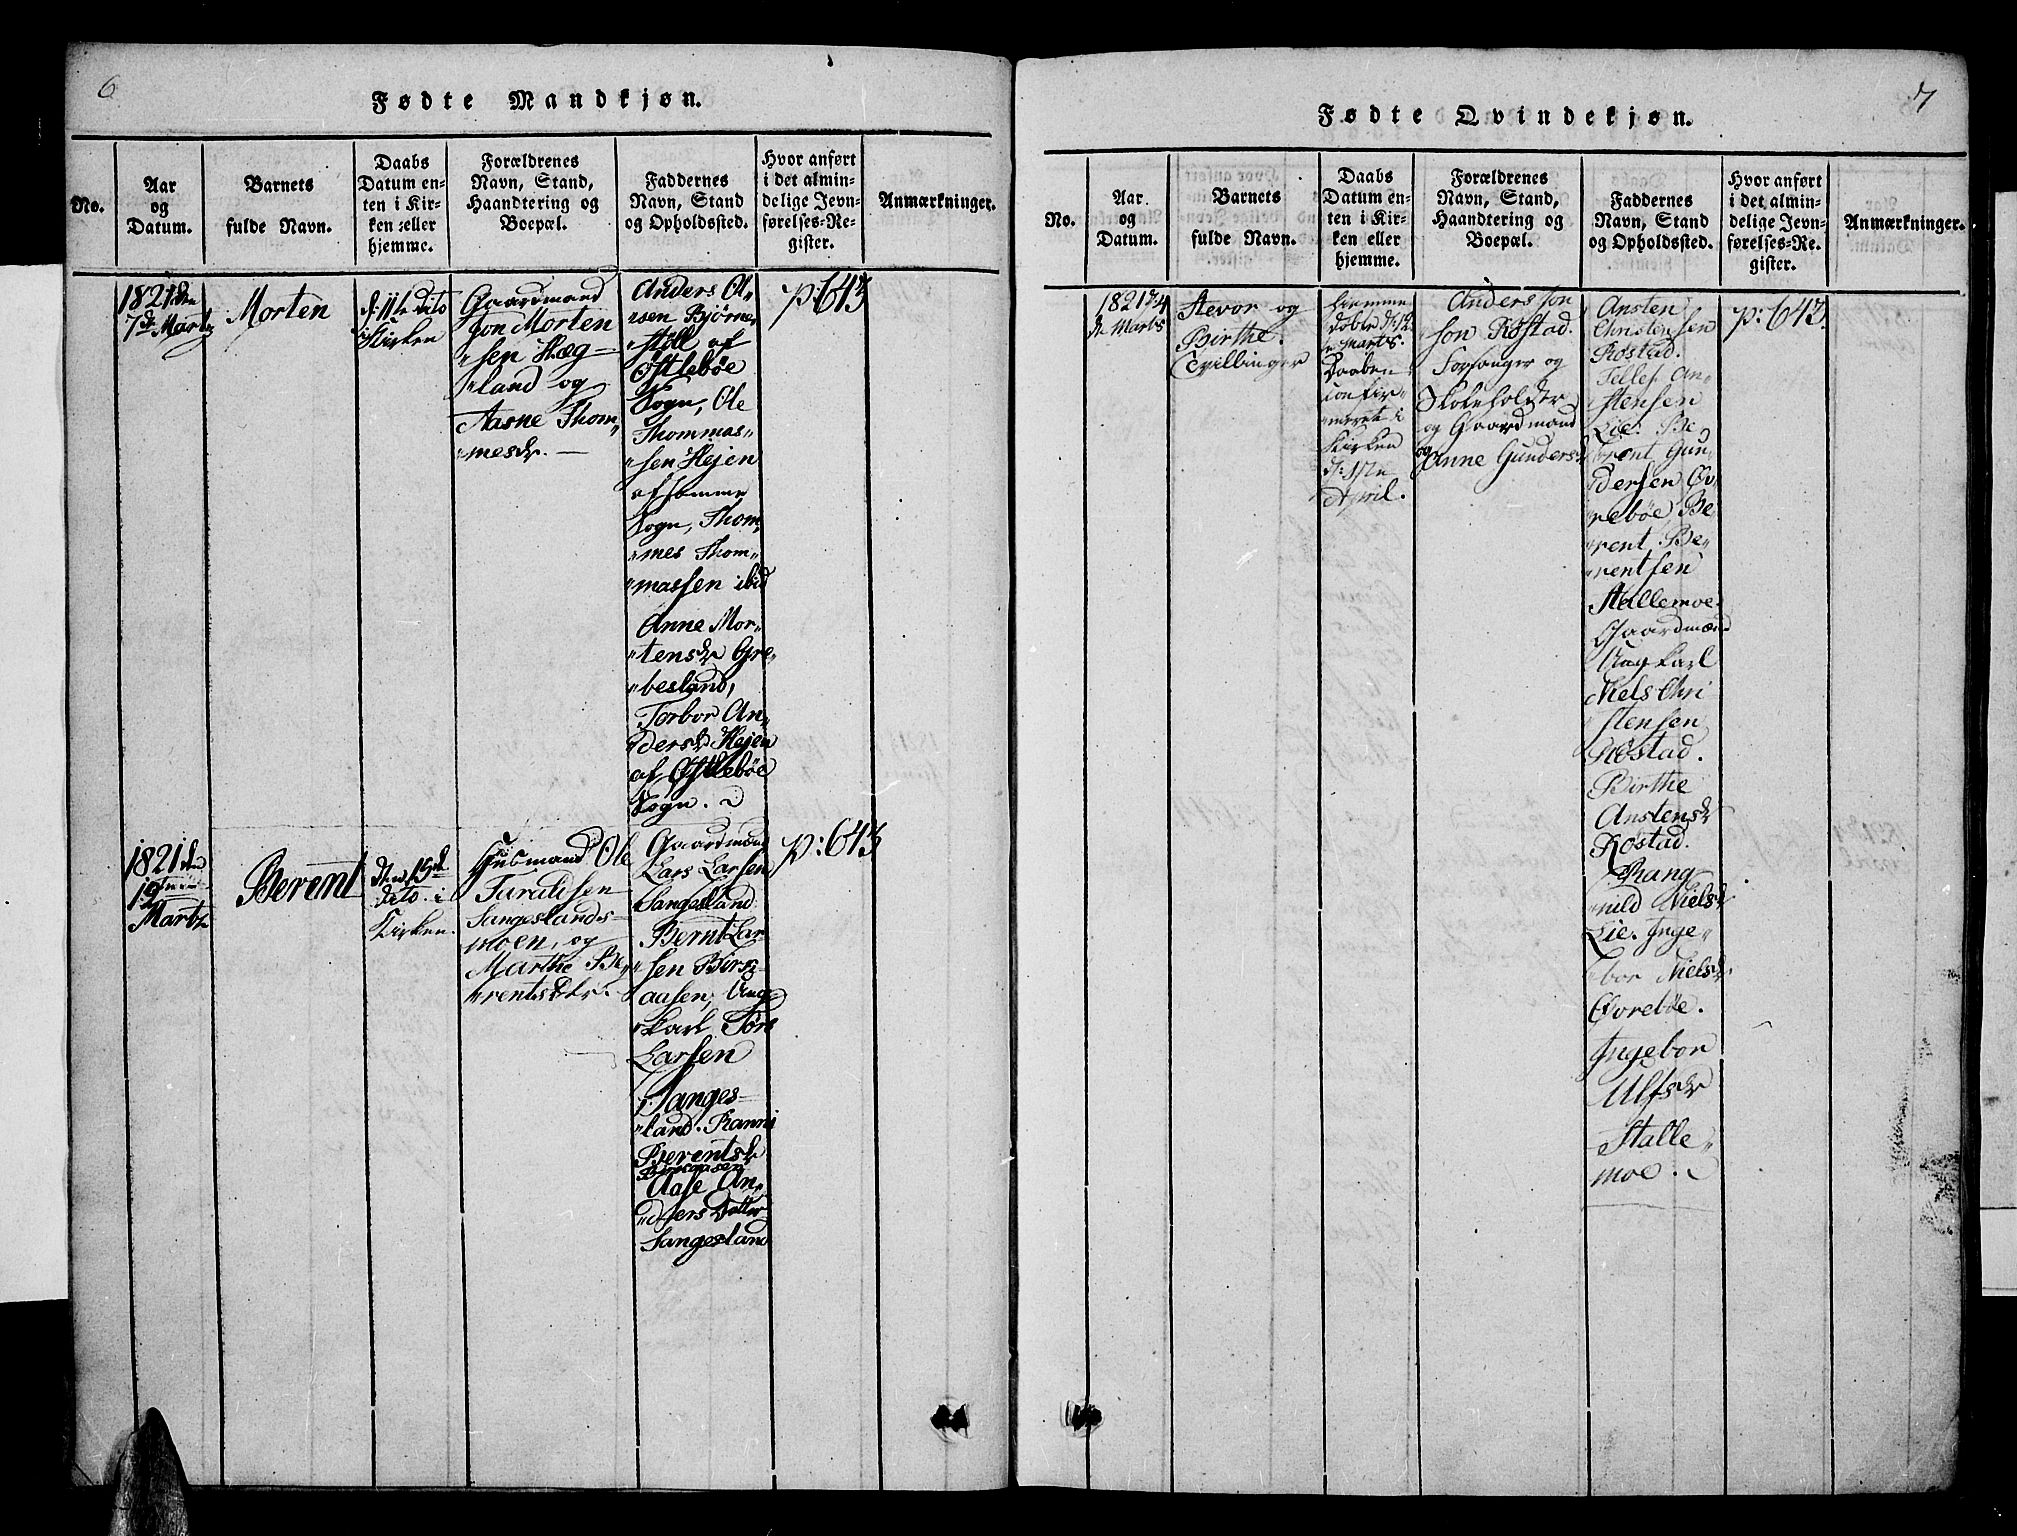 6
Fødte Mandkjøn.
No.
Aar
og
Datum.
Barnets
fulde Navn.
Daabs
Datum en-
ten i Kir-
ken eller
hjemme.
Forældrenes
Navn, Stand,
Haandtering og
Boepæl.
Faddernes
Navn, Stand
og Opholdssted.
Hvor anført
i det almin-
delige Jevn-
førelses-Re-
gister.
Anmærkninger.
1821 den
7de Martz
Morten
d: 11te dito
i Kirken
Gaardmand
Morten
"sen Hæg-
"land og
Aasne Thom"
"mesdr. —
Anders Ol"
"sen Bjørne"
"støll af
Øslebøe
Sogn, Ole
Thommas"
"sen Hejen
af samme
Sogn, Thom"
"mes Thom"
"massen ibid
Anne Mor"
"tensdr Gre"
"besland,
Torbor An"
"dersdr Hejen
af Øslebøe
Sogn.
p: 643
1821 den
12
Martz
Berent
den 15de
dito i
Kirken.
Huusmand Ole
Taraldsen
Sangeslands-
moen, og
Marthe Be"
"rentsdtr.
Gaardmænd
Lars Larsen
Sangesland
Bernt Lar-
"sen Birk-
aasen, Ung-
"karl Tore
Larsen
Sanges-
"land. Ranni
Berentsdr
Birkaasen
Aase An"
"ders Datter
Sangesland
p: 643
7
Fødte Qvindekjøn.
No.
Aar
og
Datum.
Barnets
fulde Navn.
Daabs
Datum en-
ten i Kir-
ken eller
hjemme.
Forældrenes
Navn, Stand,
Haandtering og
Boepæl.
Faddernes
Navn, Stand
og Opholdssted.
Hvor anført
i det almin-
delige Jevn-
førelses-Re-
gister.
Anmærkninger.
1821 d: 4
de Marts
Aevor og
Birthe.
Tvillinger
hjemme
døbte d: 12
te Marts.
Daaben
confir-
meret i
Kirken
d: 1ste
April.
Anders
son Røstad.
Forsanger og
Skoleholder
og Gaardmand
og
Anne Gundersdr
Ansten
Christensen
Røstad.
Tellef An"
stensen
Lie. Be
"rent Gun"
"dersen Øv"
"rebøe Be"
"rent Be"
"rentsen
Stallemoe.
Gaardmænd
Ung karl
Niels Chri
stensen
Røstad.
Birthe
Anstensdr
Røstad.
Rang
"nild Nielsdr
Lie. Inge"
"bor Nielsdr.
Øvrebøe.
Ingebor
Ulfsdr
Stalle"
moe.
p: 643.